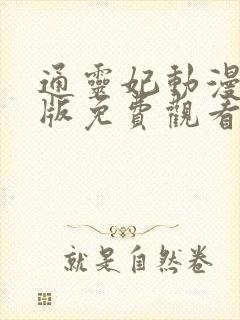 通靈妃動漫
版免費觀看
就是自然卷